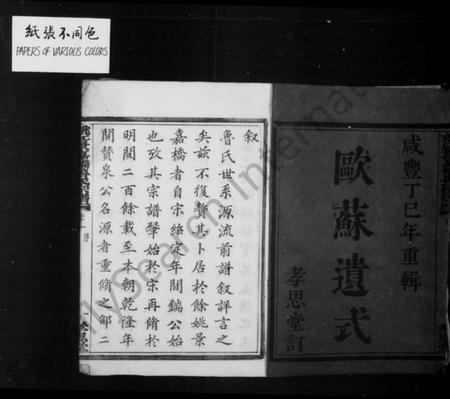 紙張不同色
PAPERS OF VARIOUS COLORS
咸豐丁巳年重輯
歐蘇遺式
孝思堂訂
叙
魯氏世系源流前譜叙詳言之
矣茲不復贅其卜居於餘姚景
嘉橋者自宋紹定年間鍴公始
也攷其宗譜肇始於宋再脩於
明閱二百餘載至本朝乾隆年
間贊泉公名源者重脩之邮二
My Search International